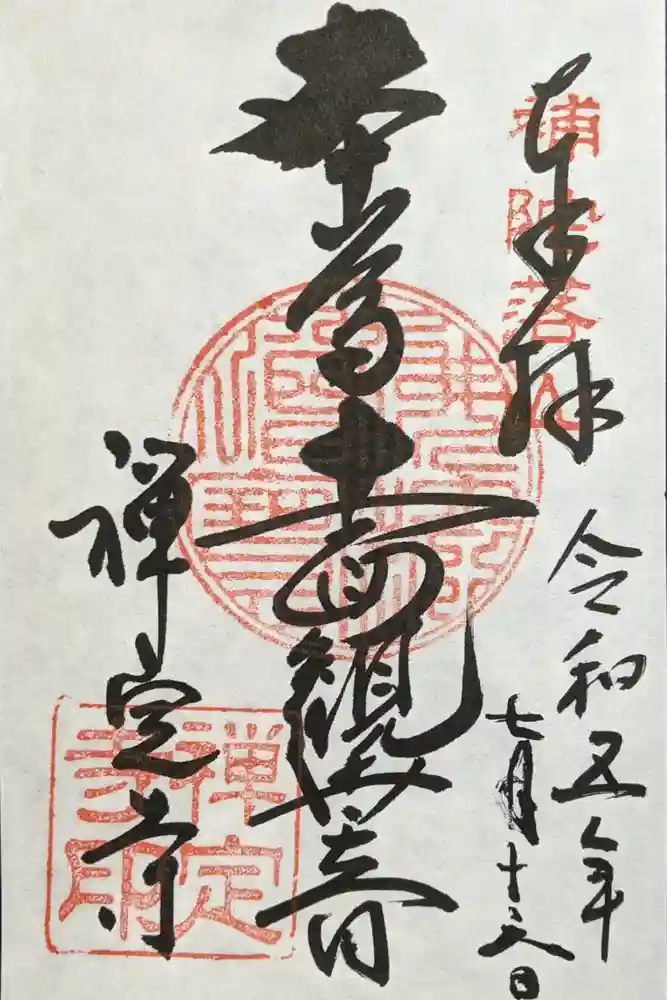 奉拝
補陀落山
令和五年
七月十六日
本尊十一面観音
禅定寺
禅定
寺印